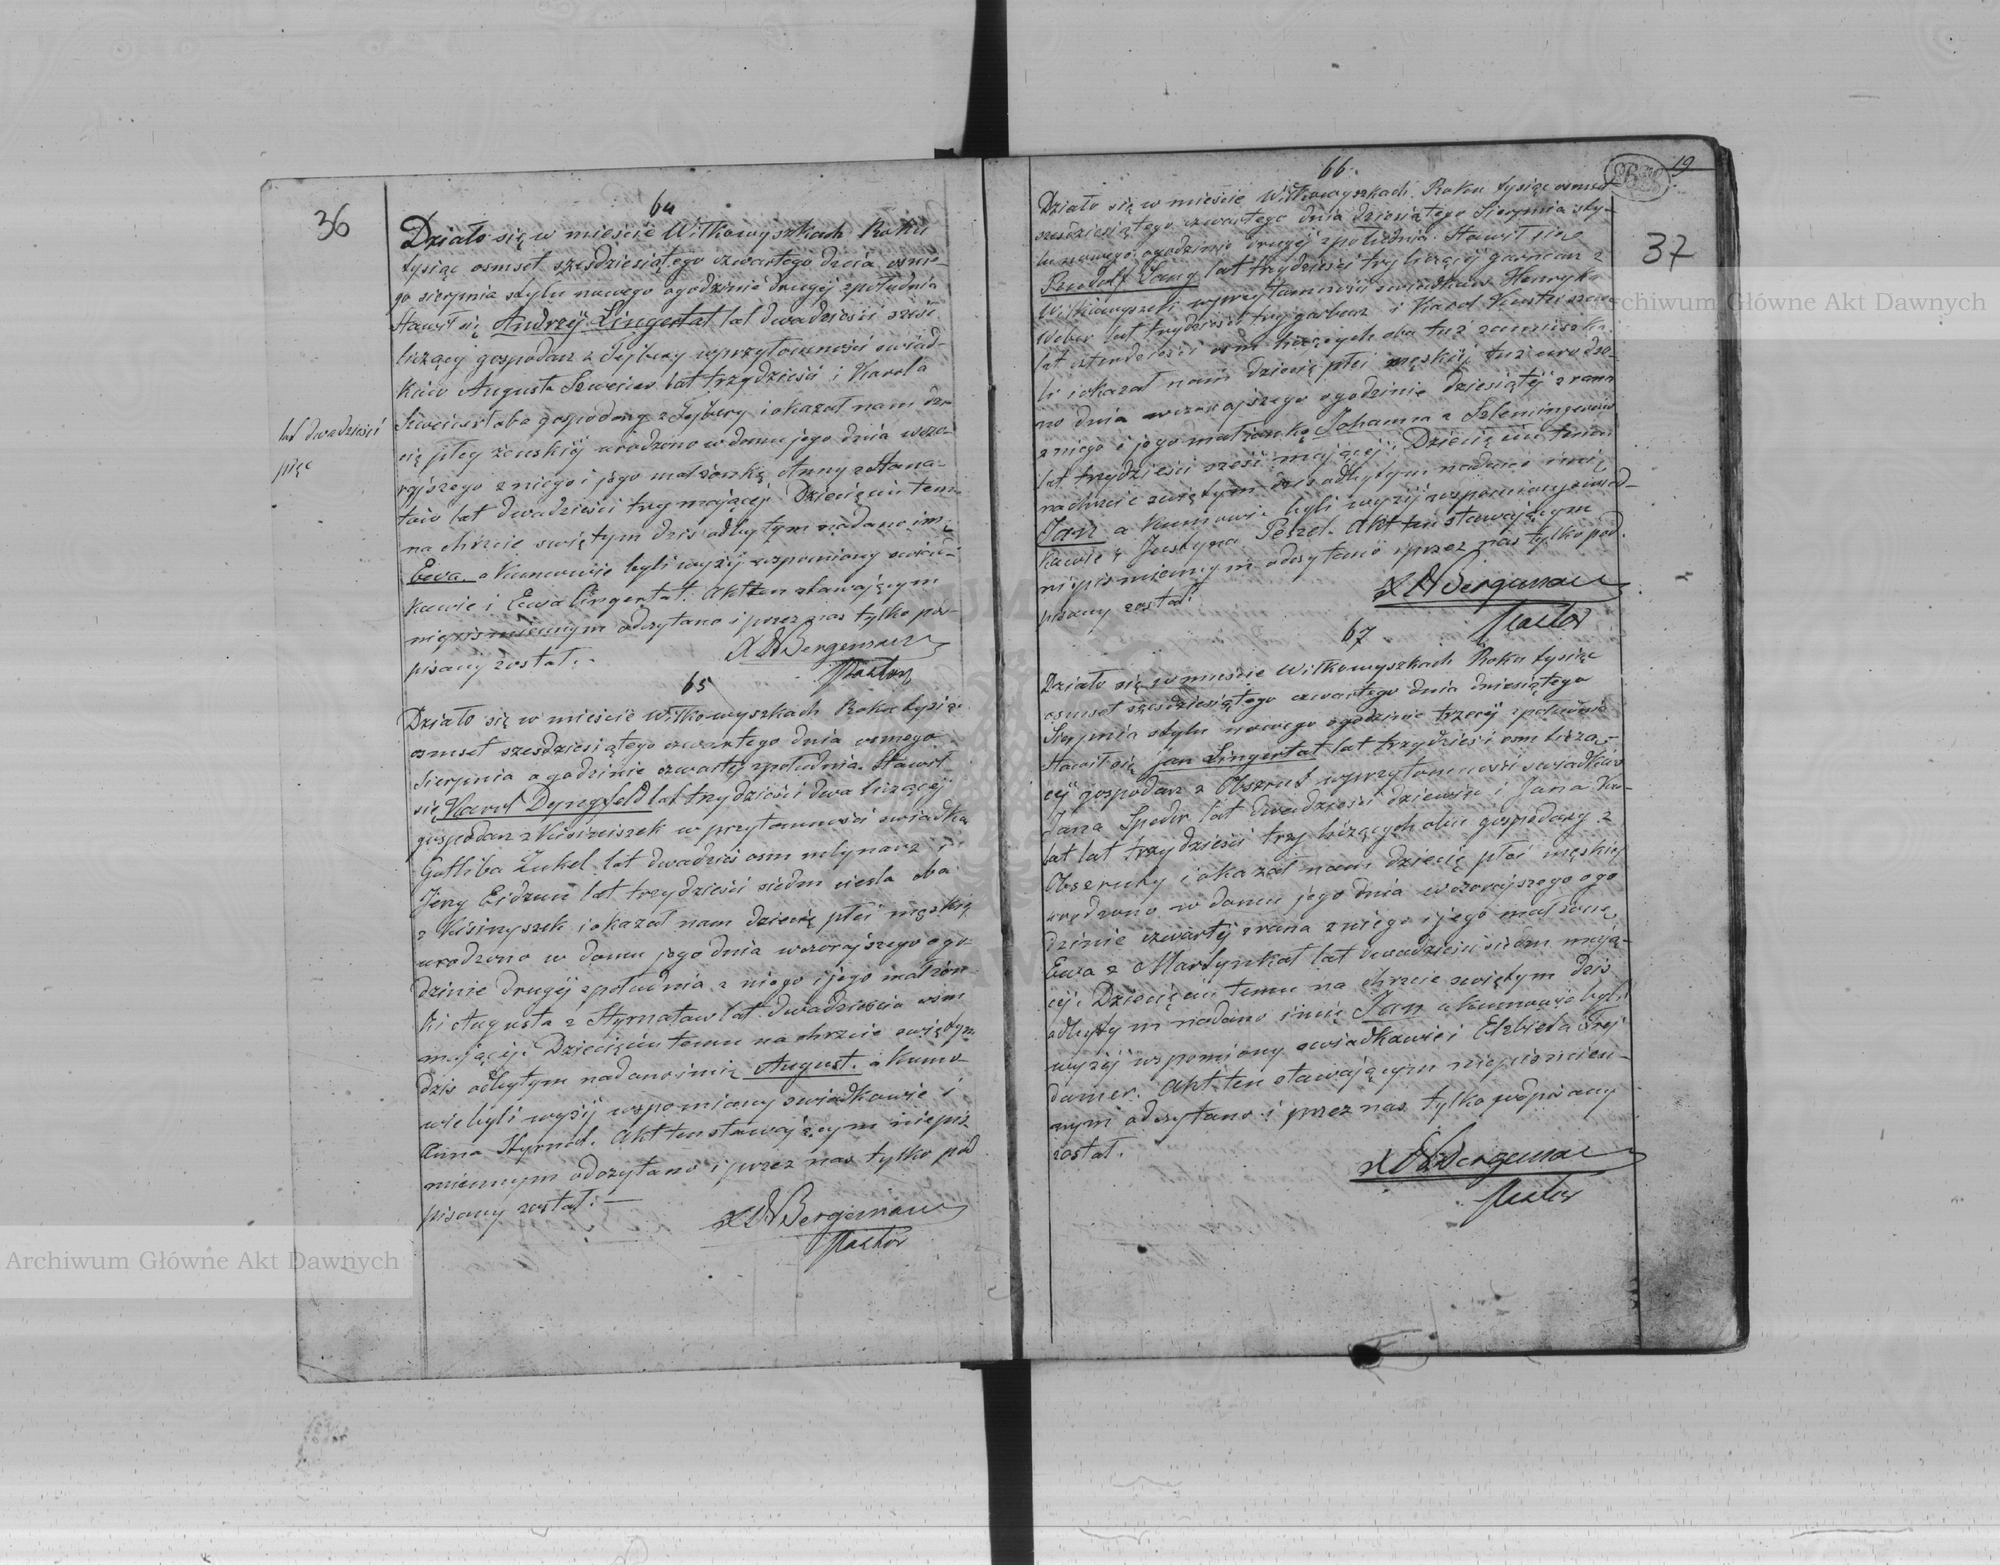 36
64
Działo się w mieście Wiłkowyszkach Roku
tysiąc osmset szesdziesiątego czwartego dnia osme-
go sierpnia stylu nowego o godzinie drugiéj z południa
Stawił się Andrzéj Lingertat lat dwadzieścia sześć
liczący gospodarz z Sejbery w przytomności swiad-
ków Augusta Szweicer lat trzydzieści i Karola
lat dwadzieści
pięć
Szweicer oba gospodarzy z Sejbery i okazał nam dzie
cię płcy żenskiéj urodzono w domu jego dnia wczo-
rajszego z niego i jego małżonką Anny z Hana-
tów lat dwadzieści trzy mającéj. Dziecięciu temu
na chrzcie swiętym dziś odbytym nadano imę
Ewa. a Kumowie byli wyżéj wspomiony swiad-
kowie i Ewa Lingertat. Akt ten stawającym
niepismiennym odczytano i przez nas tylko pod-
pisany został.
X A Bergemann
Pastor
65
Działo się w mieście Wiłkowyszkach Roku tysiąc
osmset szesdziesiątego czwartego dnia osmego
Sierpnia o godzinie czwartéj z południa. Stawił
się Karol Dyngfeld lat trzydzieści dwa liczącéj
gospodarz z w przytomności swiadka
Gotliba Zukel lat dwadzieś osm młynarz i
Jerzy Eidzun lat trzydzieści siedm ciesla oba
z i okazał nam dziecię płci męskiéj
urodzono w domu jego dnia wczorajszego o go-
dzinie drugiéj z południa z niego i jego małżon
ki Augusta z Styrnatow lat dwadzieścia osm
mającéj. Dziecięciu temu na chrzcie swiętym
dzis odbytym nadano imię August. a Kumo-
wie byli wyżéj wspomiany swiadkowie i
Anna Styrnat. Akt ten stawającym niepis
miennym odczytano i przez nas tylko pod
pisany został. —
X A Bergemann
Pastor
19
66
37
Działo się w mieście Wiłkowyszkach. Roku tysiąc osmset
szesdziesiątego czwartego dnia dziesiątego Sierpnia sty-
lu nowego o godzinie drugiéj z południa. Stawił się
Rudolf Lang lat trzydzieści trzy liczącéj garncarz z
Wiłkowyszek w przytomności swiadków Henryka
Weber lat trzydzieści trzy garbarz i Karol szewc
lat osm liczących oba tuż zamieszka-
li i okazał nam dziecię płci męskiéj tuż urodzo-
no dnia wczorajszego o godzinie dziesiątéj z rana
z niego i jego małżonką Johanna z Szleningerów
lat trzydzieści sześć mającéj. Dziecięciu temu
na chrzcie swiętym dzis odbytym nadano imię
Jan a Kumowie byli wyżéj wspomiany swiad-
kowie i Justyna Peszel. Akt ten stawającym
niepismiennym odczytano i przez nas tylko pod-
pisany został.
X A Bergemann
Pastor
67
Działo się w mieście Wiłkowyszkach Roku tysiąc
osmset szesdziesiątego czwartego dnia dziesiątego
Sierpnia stylu nowego o godzinie trzeciéj z południa
Stawił się Jan Lingertat lat trzydzieści osm liczą-
céj gospodarz z Obszrut w przytomności swiadków
Jana Speder lat dwadzieści dziewięć i Jana Ku-
lat lat trzydzieści trzy liczących oba gospodarzy z
Obszruty i okazał nam dziecię płci męskiéj
urodzono w domu jego dnia wczorajszego o go
dzinie czwartéj z rana z niego i jego małżonę
Ewa z Martynkat lat dwadzieści siedm mają-
céj. Dziecięciu temu na chrzcie swiętym dzis
odbytym nadano imię Jan a kumowie byli
wyżéj wspomiony swiadkowie i Elzbieta Frej
damer. Akt ten stawającym niepismien-
nym odczytano i przez nas tylko podpisany
został.
X A Bergemann
Pastor
Archiwum Główne Akt Dawnych
Archiwum Główne Akt Dawnych